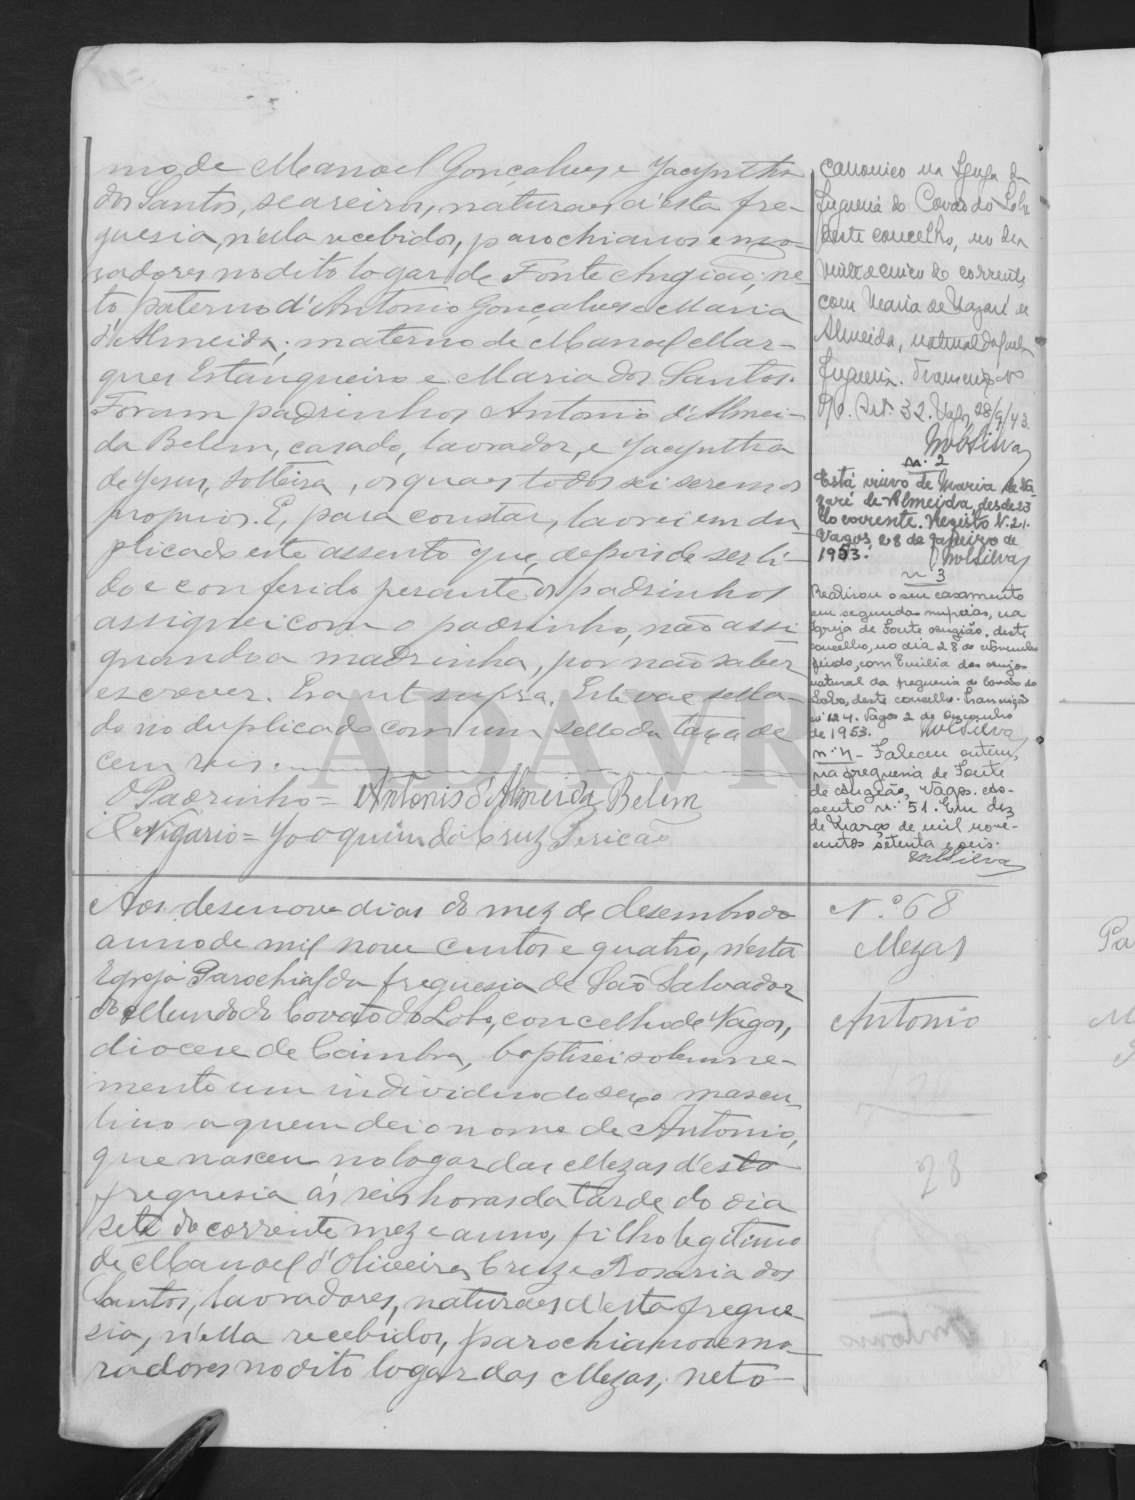 mo de Manoel Gonçalves e Jacyntha
dos Santos, seareiros, naturaes d'esta fre-
guesia, n'ella recebidos, parochianos e mo-
radores no dito logar de Fonte Angião; ne-
to paterno d'Antonio Gonçalves e Maria
d'Almeida; materno de Manoel Mar-
ques Estanqueiro e Maria dos Santos.
Foram padrinhos Antonio d'Almei-
da Belem, casado, lavrador, e Jacyntha
de Jesus, solteira, os quaes todos sei serem os
proprios. E, para constar, lavrei em du
plicado este assento que, depois de ser li-
do e conferido perante os padrinhos
assignei com o padrinho, não assi
gnando a madrinha, por não saber
escrever. Era ut supra. Este vae sella-
do no duplicado com um sello da taxa de
cem reis.
O Padrinho = Antonio d'Almeida Belem
O Vigario = Joaquim da Cruz Pericão
canonico na Igreja da
freguesia do Covão do Lobo
deste concelho, no dia
vinte e cinco do corrente,
com Maria de Nazaré de
Almeida, natural daquela
freguesia.
32. Vagos 28/9/43.
MolSilva
n.º 2
Está viuvo de Maria de Na-
zaré de Almeida, desde 23
do corrente. Registo N.º 21.
Vagos, 28 de Janeiro de
1953. MolSilva
n.º 3
Realizou o seu casamento
em segundas nupcias, na
Igreja de Fonte Angião, deste
concelho, no dia 28 de Novembro
findo, com Emilia dos Anjos
natural da freguesia de Covão do
Lobo, deste concelho. Transcrição
n.º 124. Vagos 2 de Dezembro
de 1953. MolSilva
n.º 4 - Faleceu ontem,
na freguesia de Fonte
de Angeão, Vagos. As-
sento n.º 51. Em dez
de Março de mil nove-
centos setenta e seis.
MolSilva
Aos desenove dias do mez de Desembro do
anno de mil nove centos e quatro, n'esta
Egreja Parochial da freguesia de São Salvador
do Mundo do Covão do Lobo, concelho de Vagos,
diocese de Coimbra, baptisei solemne-
mente um individuo do sexo mascu
lino a quem dei o nome de Antonio,
que nasceu no logar das Mezas d'esta
freguesia ás seis horas da tarde do dia
sete do corrente mez e anno, filho legitimo
de Manoel d'Oliveira Cruz e Rosaria dos
Santos, lavradores, naturaes d'esta fregue-
sia, n'ella recebidos, parochianos e mo-
radores no dito logar das Mezas; neto
N.º 68
Mezas
Antonio
28
Pa
ADAVR